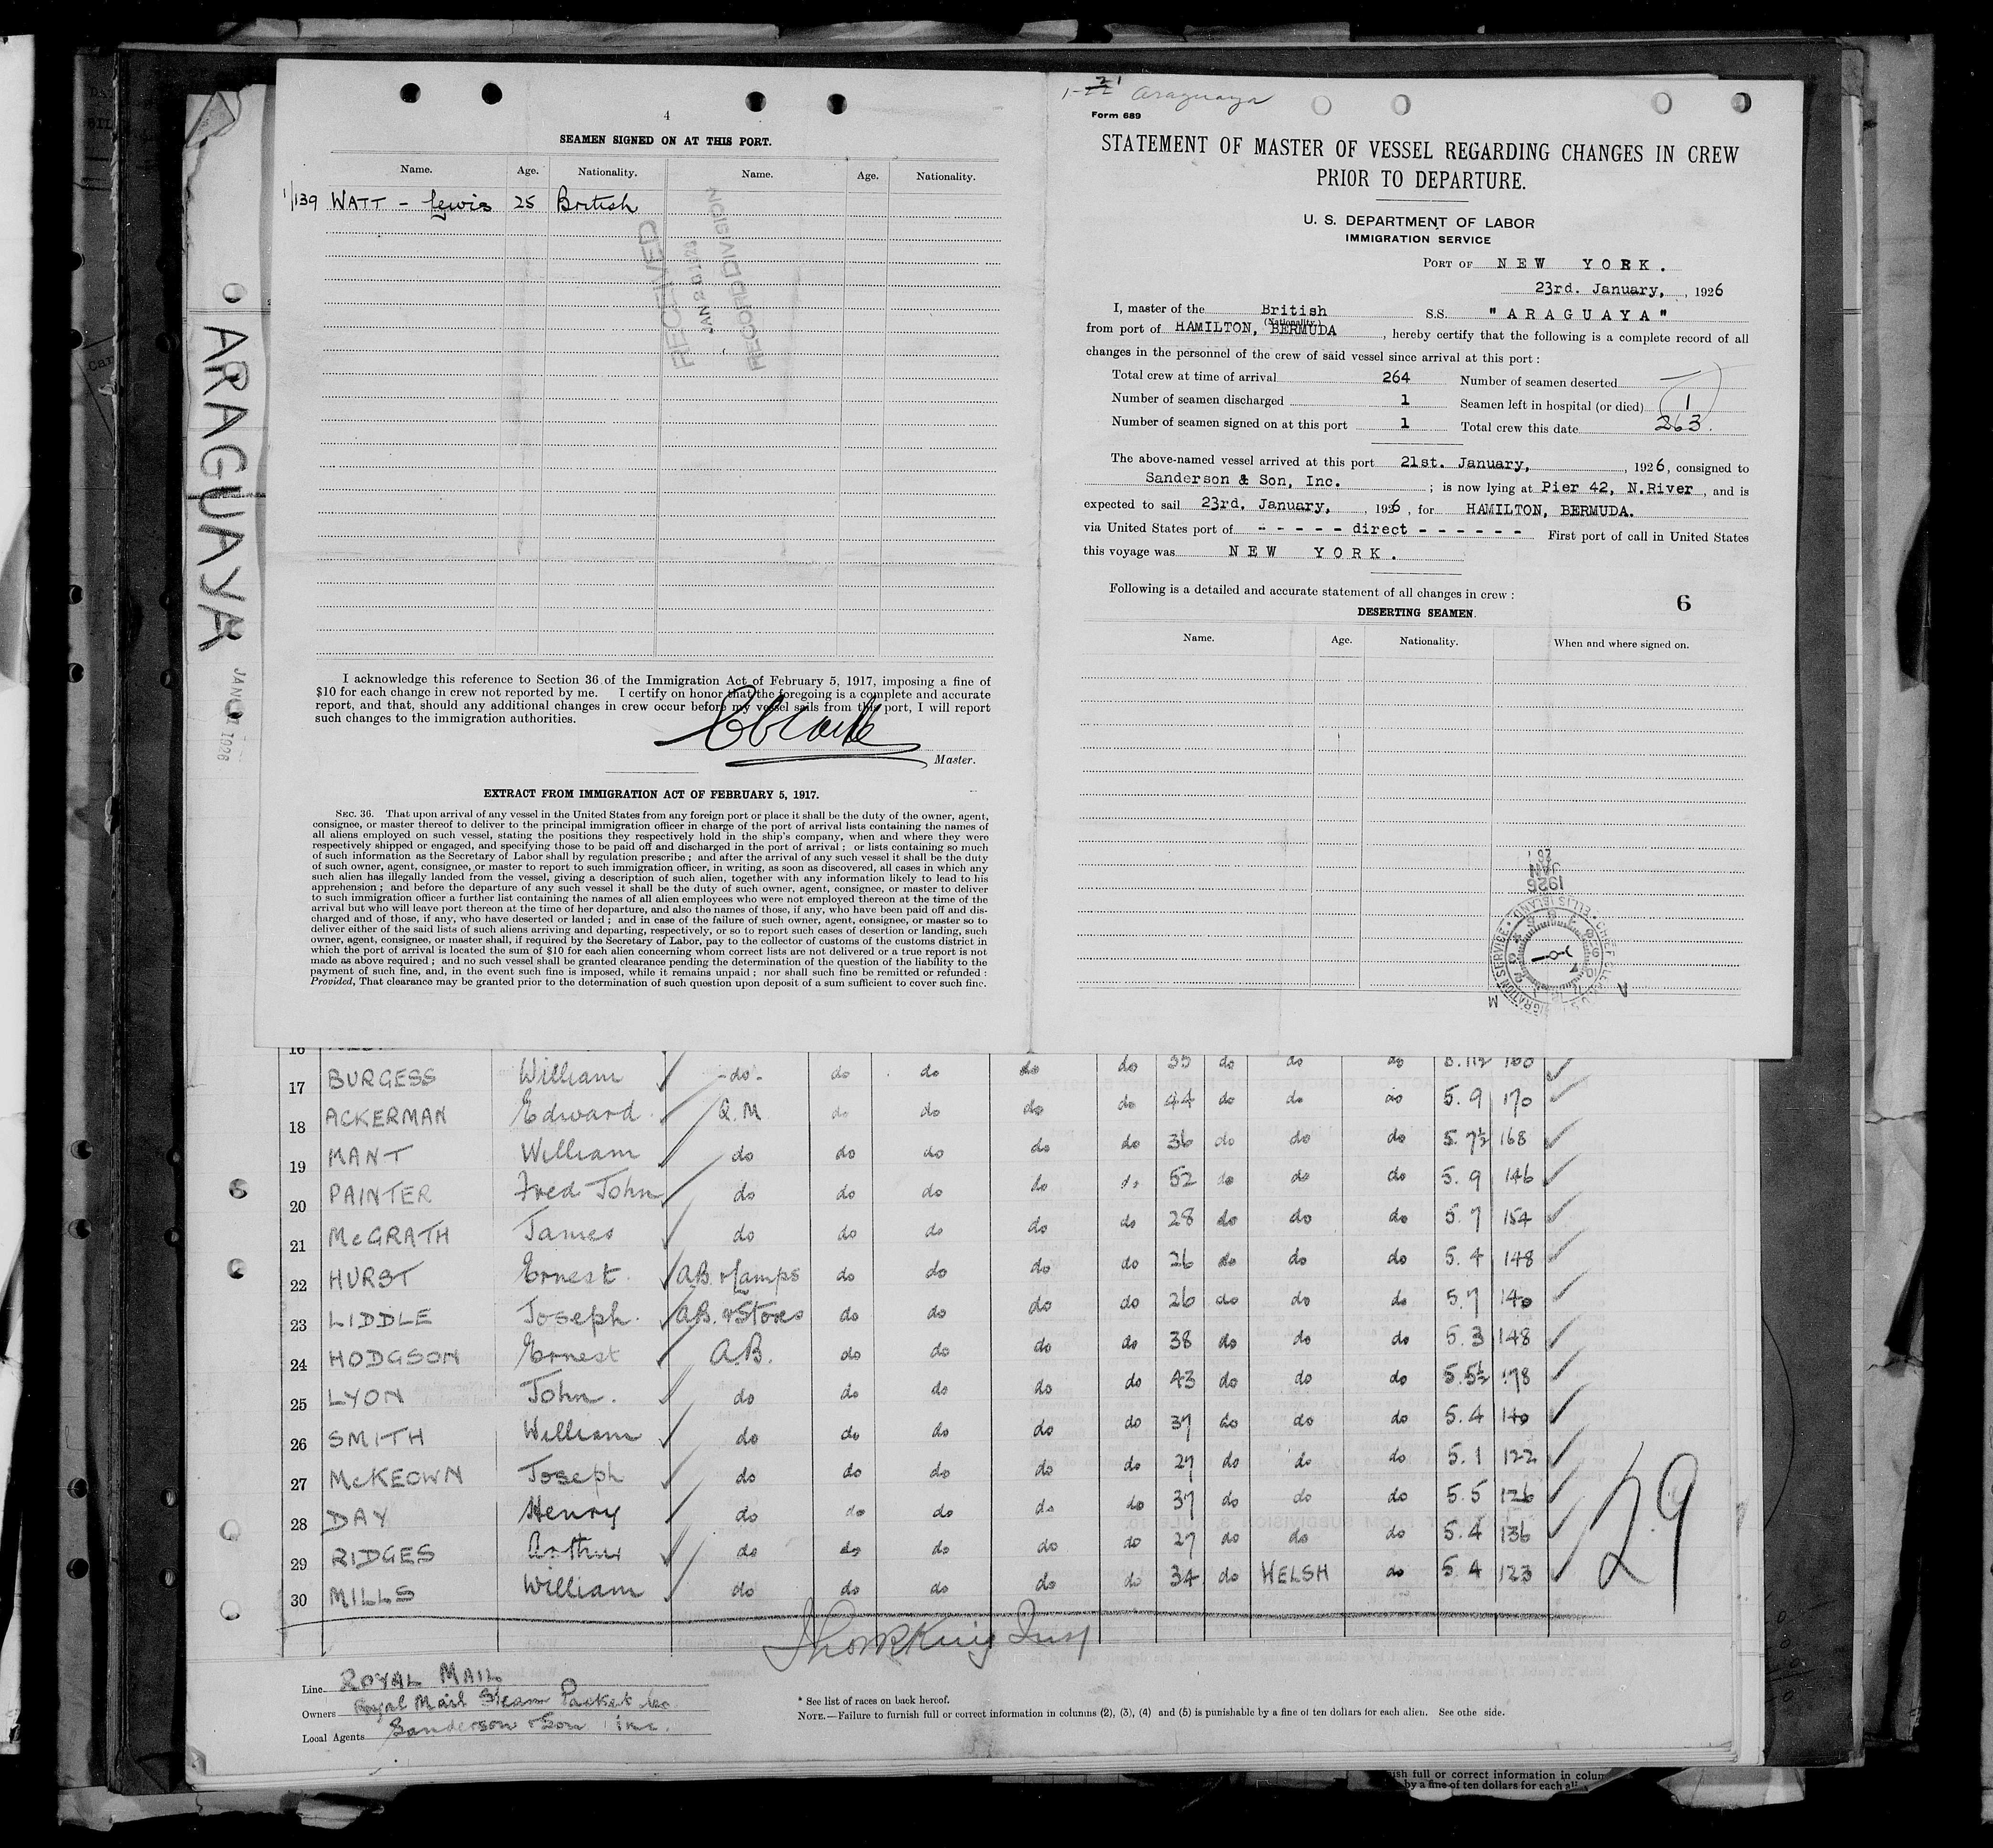 4
SEAMEN SIGNED ON AT THIS PORT.
Name. Age. Nationality. Name. Age. Nationality.
1/139 WATT - Lewis 25 British
RECEIVED
JAN 2 1926
RECORD DIVISION
I acknowledge this reference to Section 36 of the Immigration Act of February 5, 1917, imposing a fine of
$10 for each change in crew not reported by me. I certify on honor that the foregoing is a complete and accurate
report, and that, should any additional changes in crew occur before my vessel sails from this port, I will report
such changes to the immigration authorities.
Master.
EXTRACT FROM IMMIGRATION ACT OF FEBRUARY 5, 1917.
SEC. 36. That upon arrival of any vessel in the United States from any foreign port or place it shall be the duty of the owner, agent,
consignee, or master thereof to deliver to the principal immigration officer in charge of the port of arrival lists containing the names of
all aliens employed on such vessel, stating the positions they respectively hold in the ship's company, when and where they were
respectively shipped or engaged, and specifying those to be paid off and discharged in the port of arrival; or lists containing so much
of such information as the Secretary of Labor shall by regulation prescribe; and after the arrival of any such vessel it shall be the duty
of such owner, agent, consignee, or master to report to such immigration officer, in writing, as soon as discovered, all cases in which any
such alien has illegally landed from the vessel, giving a description of such alien, together with any information likely to lead to his
apprehension; and before the departure of any such vessel it shall be the duty of such owner, agent, consignee, or master to deliver
to such immigration officer a further list containing the names of all alien employees who were not employed thereon at the time of the
arrival but who will leave port thereon at the time of her departure, and also the names of those, if any, who have been paid off and dis-
charged and of those, if any, who have deserted or landed; and in case of the failure of such owner, agent, consignee, or master so to
deliver either of the said lists of such aliens arriving and departing, respectively, or so to report such cases of desertion or landing, such
owner, agent, consignee, or master shall, if required by the Secretary of Labor, pay to the collector of customs of the customs district in
which the port of arrival is located the sum of $10 for each alien concerning whom correct lists are not delivered or a true report is not
made as above required; and no such vessel shall be granted clearance pending the determination of the question of the liability to the
payment of such fine, and, in the event such fine is imposed, while it remains unpaid; nor shall such fine be remitted or refunded:
Provided, That clearance may be granted prior to the determination of such question upon deposit of a sum sufficient to cover such fine.
Araguaya
Form 689
STATEMENT OF MASTER OF VESSEL REGARDING CHANGES IN CREW
PRIOR TO DEPARTURE.
U. S. DEPARTMENT OF LABOR
IMMIGRATION SERVICE
PORT OF NEW YORK.
23rd. January, , 1926
I, master of the British S.S. "ARAGUAYA"
(Nationality.)
from port of HAMILTON, BERMUDA , hereby certify that the following is a complete record of all
changes in the personnel of the crew of said vessel since arrival at this port:
Total crew at time of arrival 264 Number of seamen deserted
Number of seamen discharged 1 Seamen left in hospital (or died) 1
Number of seamen signed on at this port 1 Total crew this date 263.
The above-named vessel arrived at this port 21st. January, , 1926, consigned to
Sanderson & Son, Inc. ; is now lying at Pier 42, N.River , and is
expected to sail 23rd. January, , 1926 , for HAMILTON, BERMUDA.
via United States port of - - - - - direct - - - - - - First port of call in United States
this voyage was NEW YORK.
Following is a detailed and accurate statement of all changes in crew:
6
DESERTING SEAMEN.
Name. Age. Nationality. When and where signed on.
JAN
1926
ARAGUAYA
JAN 1926
16 35 do do do 5.11½ 160
17 BURGESS William -do- do do do do 44 do do do 5.9 170
18 ACKERMAN Edward Q.M do do do do 36 do do do 5.7½ 168
19 MANT William do do do do do 52 do do do 5.9 146
20 PAINTER Fred John do do do do do 28 do do do 5.7 154
21 McGRATH James do do do do do 26 do do do 5.4 148
22 HURST Ernest AB. & Lamps do do do do 26 do do do 5.7 140
23 LIDDLE Joseph AB. & Stores do do do do 38 do do do 5.3 148
24 HODGSON Ernest A.B. do do do do 43 do do do 5.5½ 178
25 LYON John. do do do do do 37 do do do 5.4 140
26 SMITH William do do do do do 27 do do do 5.1 122
27 McKEOWN Joseph do do do do do 37 do do do 5.5 126
28 DAY Henry do do do do do 27 do do do 5.4 136
29 RIDGES Arthur do do do do do 34 do WELSH do 5.4 123
30 MILLS William do do do do do
29
Line ROYAL MAIL
Owners Royal Mail Steam Packet Co.
Local Agents Sanderson & Son Inc.
* See list of races on back hereof.
NOTE.—Failure to furnish full or correct information in columns (2), (3), (4) and (5) is punishable by a fine of ten dollars for each alien. See othe side.
ish full or correct information in colum
by a fine of ten dollars for each al